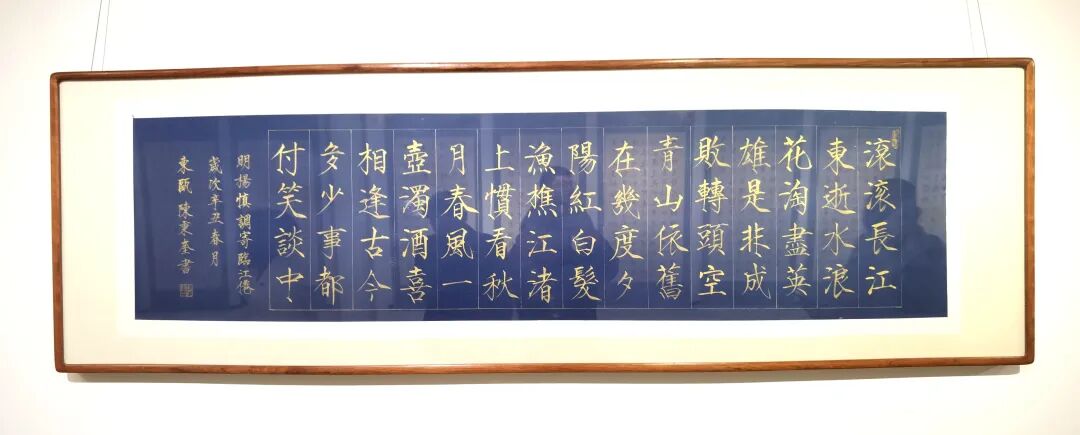 滾滾長江
東逝水浪
花淘盡英
雄是非成
敗轉頭空
青山依舊
在幾度夕
陽紅白髮
漁樵江渚
上慣看秋
月春風一
壺濁酒喜
相逢古今
多少事都
付笑談中
明楊慎調寄臨江僊
歲次辛丑春月
東甌陳秉奎書